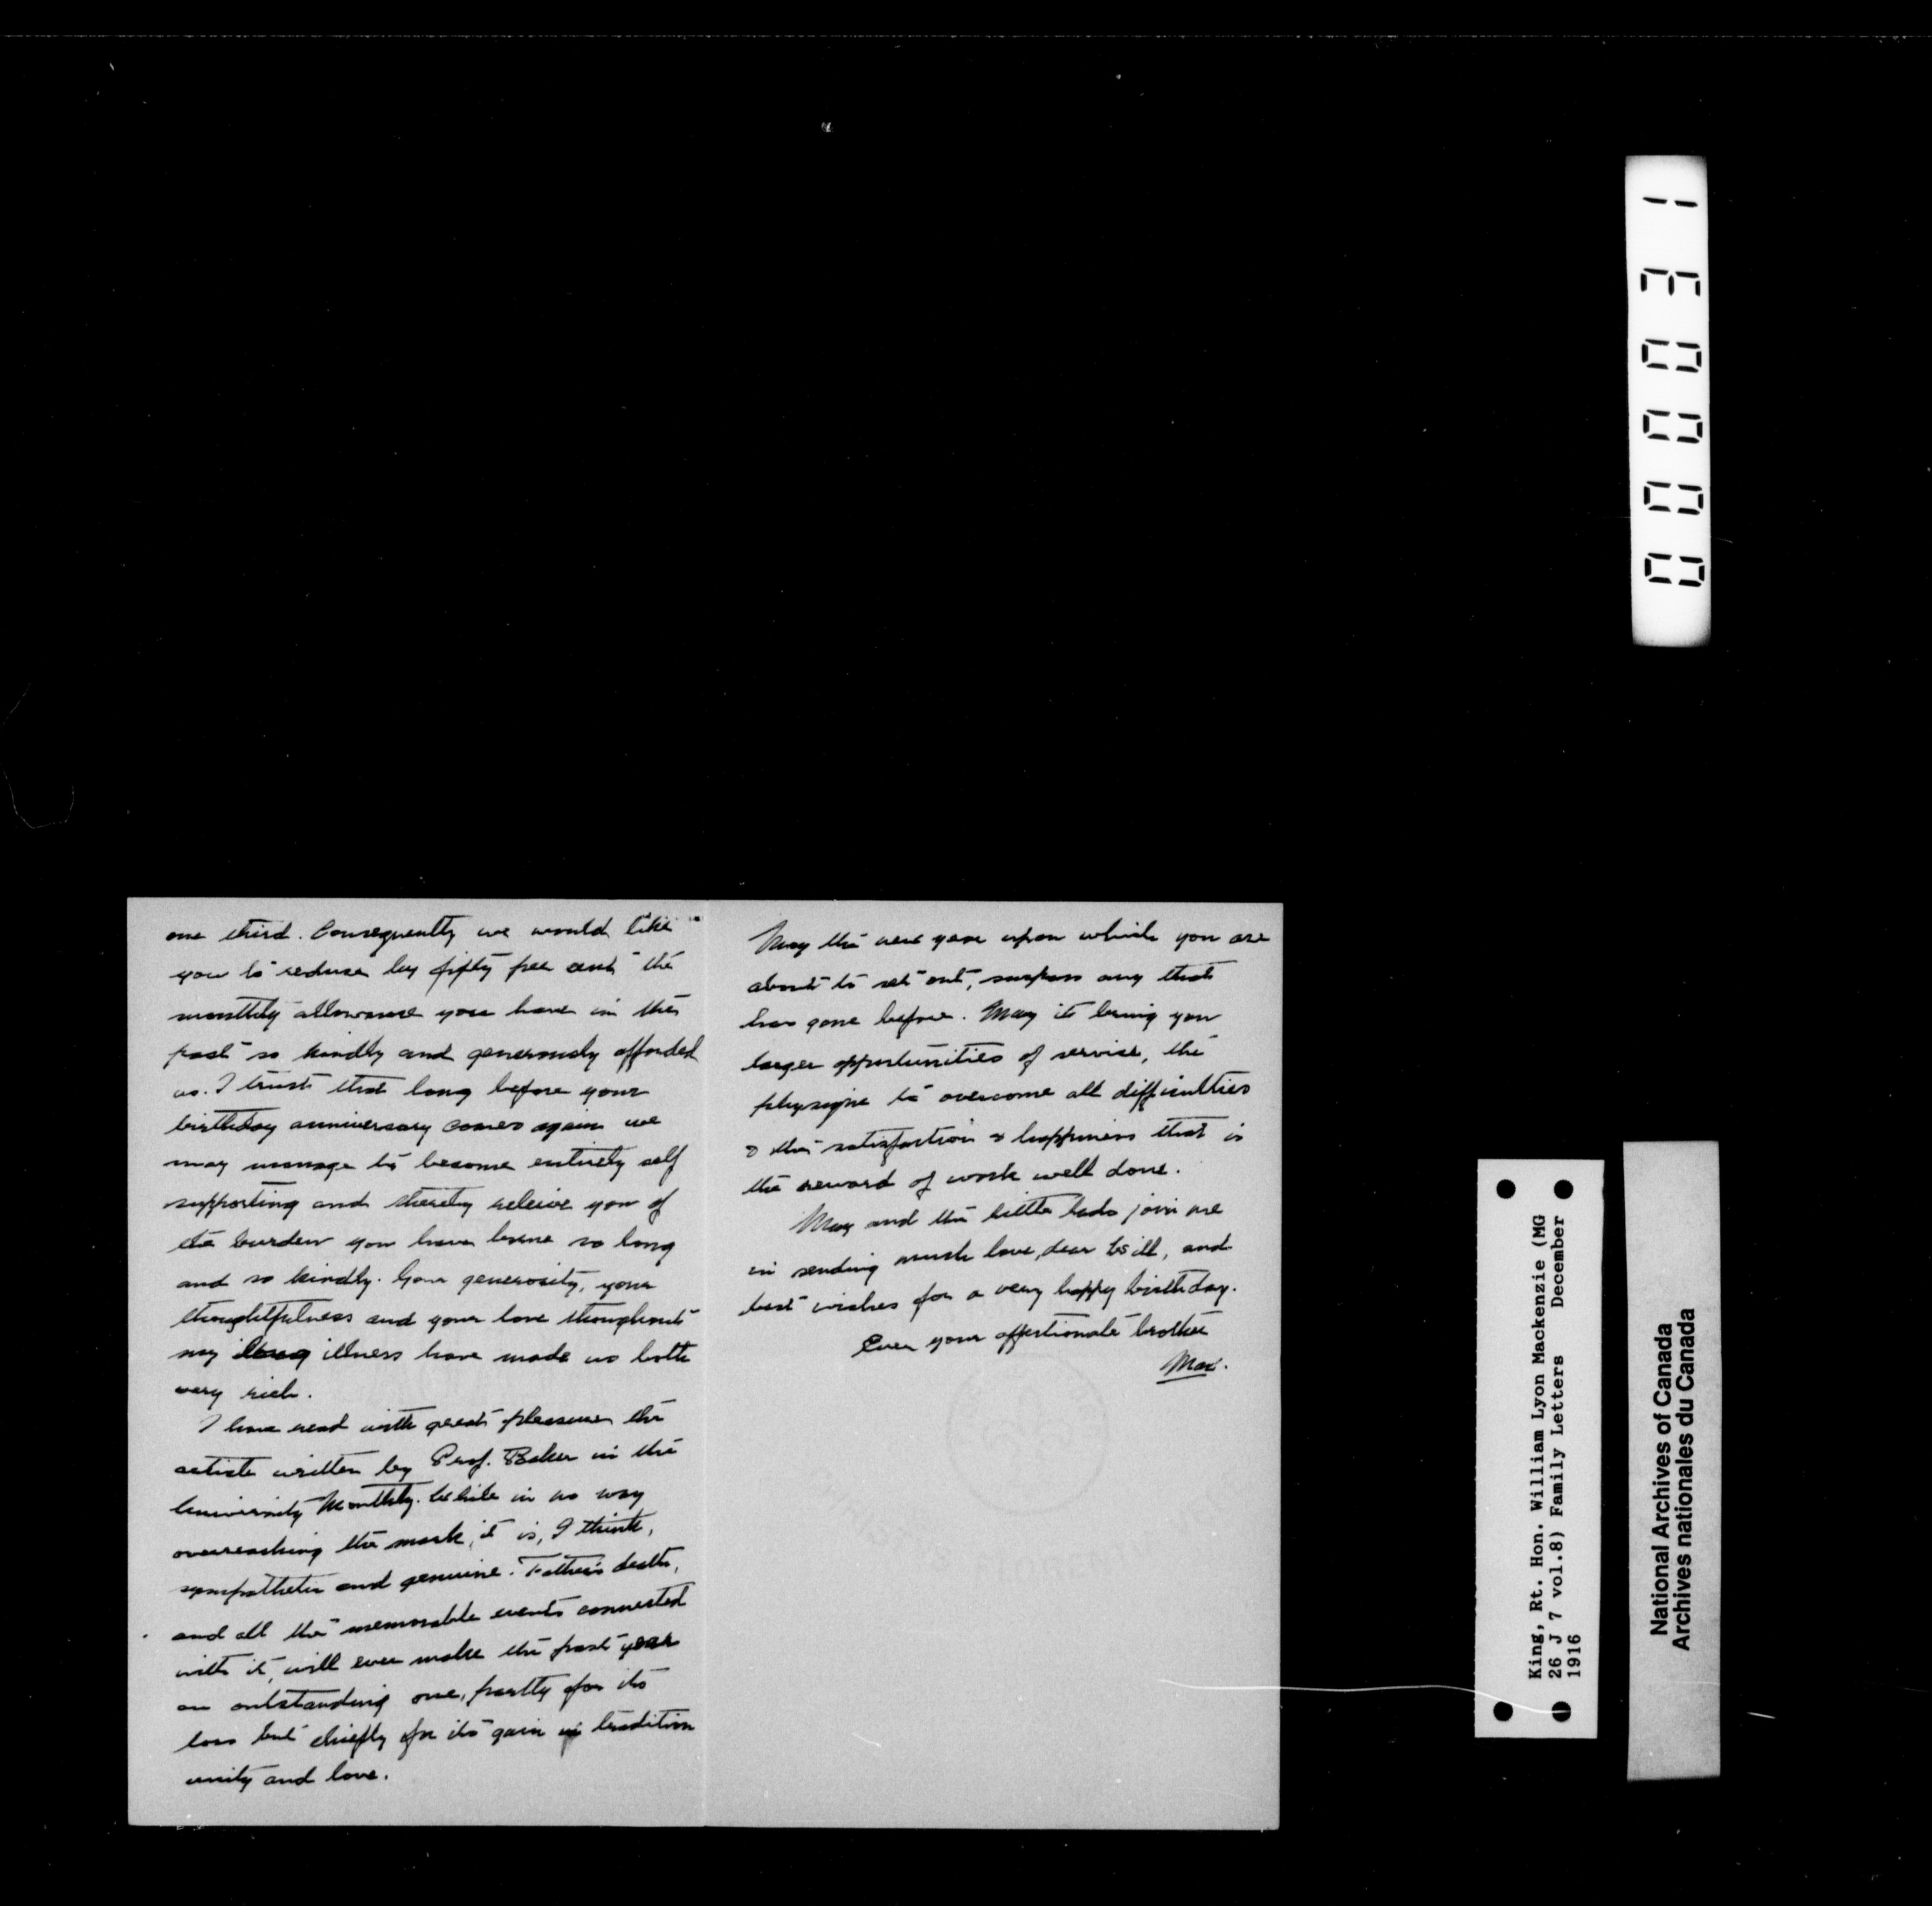 one third. Consequently we would like
you to reduce by fifty per cent the
monthly allowance you have in the
past so kindly and generously afforded
us. I trust that long before your
birthday anniversary comes again we
may manage to become entirely self
supporting and thereby releive you of
the burden you have borne so long
and so kindly. Your generosity, your
thoughtfulness and your love throughout
my long illness have made us both
very rich.
I have read with great pleasure the
article written by Prof. Baker in the
University Monthly. While in no way
overreaching the mark, it is, I think,
sympathetic and genuine. Father's death,
and all the memorable events connected
with it, will ever make the past year
an outstanding one, partly for its
loss but chiefly for its gain in tradition
unity and love.
May the new year upon which you are
about to set out, surpass any that
has gone before. May it bring you
larger opportunities of service, the
physique to overcome all difficulties
& the satisfaction & happiness that is
the reward of work well done.
May and the little lads join me
in sending much love, dear Bill, and
best wishes for a very happy birthday.
Ever your affectionate brother
Max.
000031
King, Rt. Hon. William Lyon Mackenzie (MG
26 J 7 vol.8) Family Letters December
1916
National Archives of Canada
Archives nationales du Canada